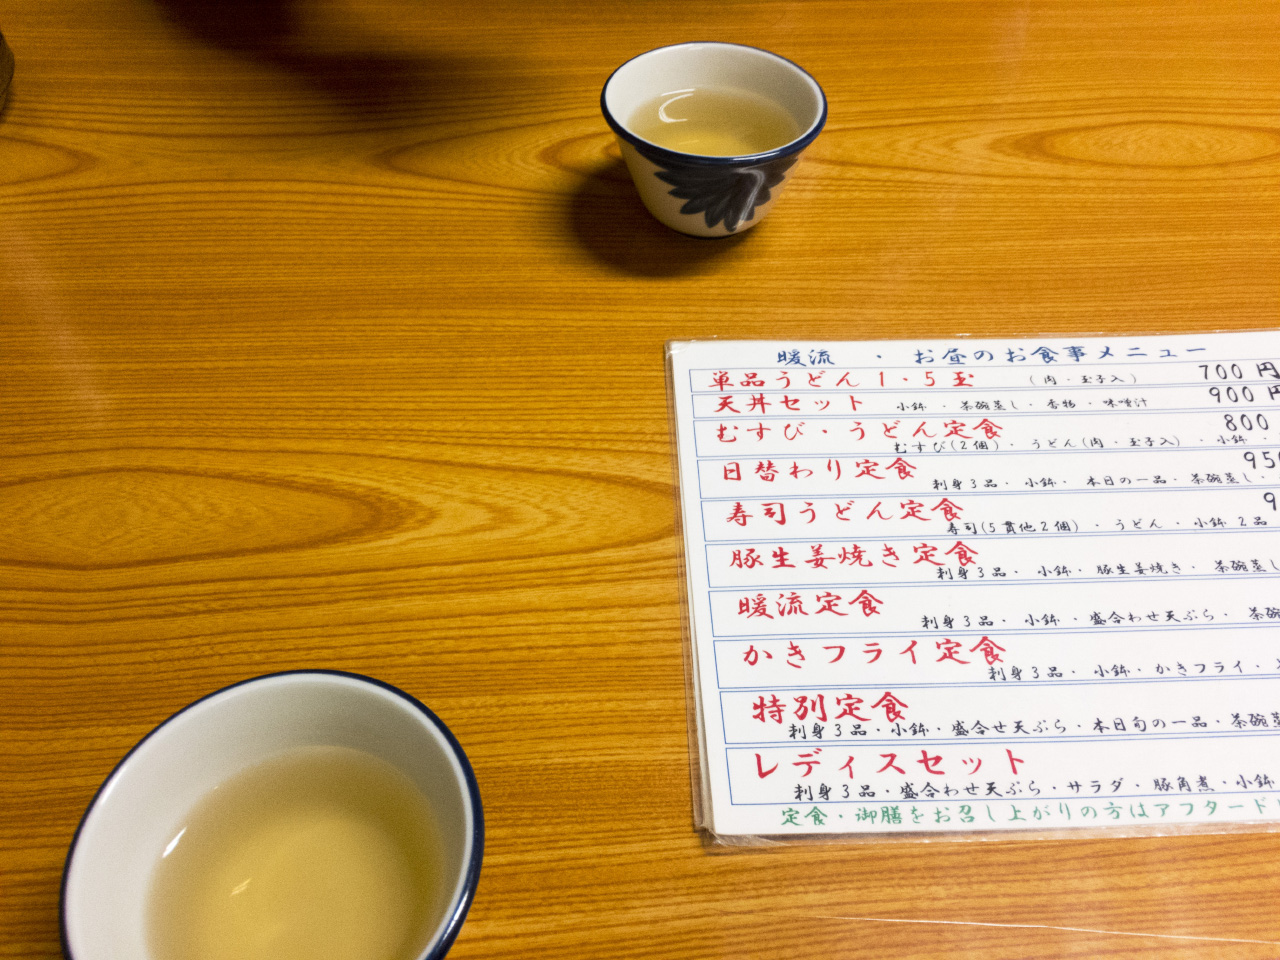 暖流 ・ お昼のお食事メニュー
単品うどん1・5玉 (肉・玉子入) 700円
天丼セット 小鉢・茶碗蒸し・香物・味噌汁 900円
むすび・うどん定食 800
むすび(2個)・うどん(肉・玉子入)・小鉢・
日替わり定食 950
刺身3品・小鉢・本日の一品・茶碗蒸し・
寿司うどん定食 9
寿司(5貫他2個)・うどん・小鉢2品
豚生姜焼き定食
刺身3品・小鉢・豚生姜焼き・茶碗蒸し
暖流定食
刺身3品・小鉢・盛合わせ天ぷら・茶碗
かきフライ定食
刺身3品・小鉢・かきフライ・
特別定食
刺身3品・小鉢・盛合せ天ぷら・本日旬の一品・茶碗蒸
レディスセット
刺身3品・盛合わせ天ぷら・サラダ・豚角煮・小鉢
定食・御膳をお召し上がりの方はアフタード